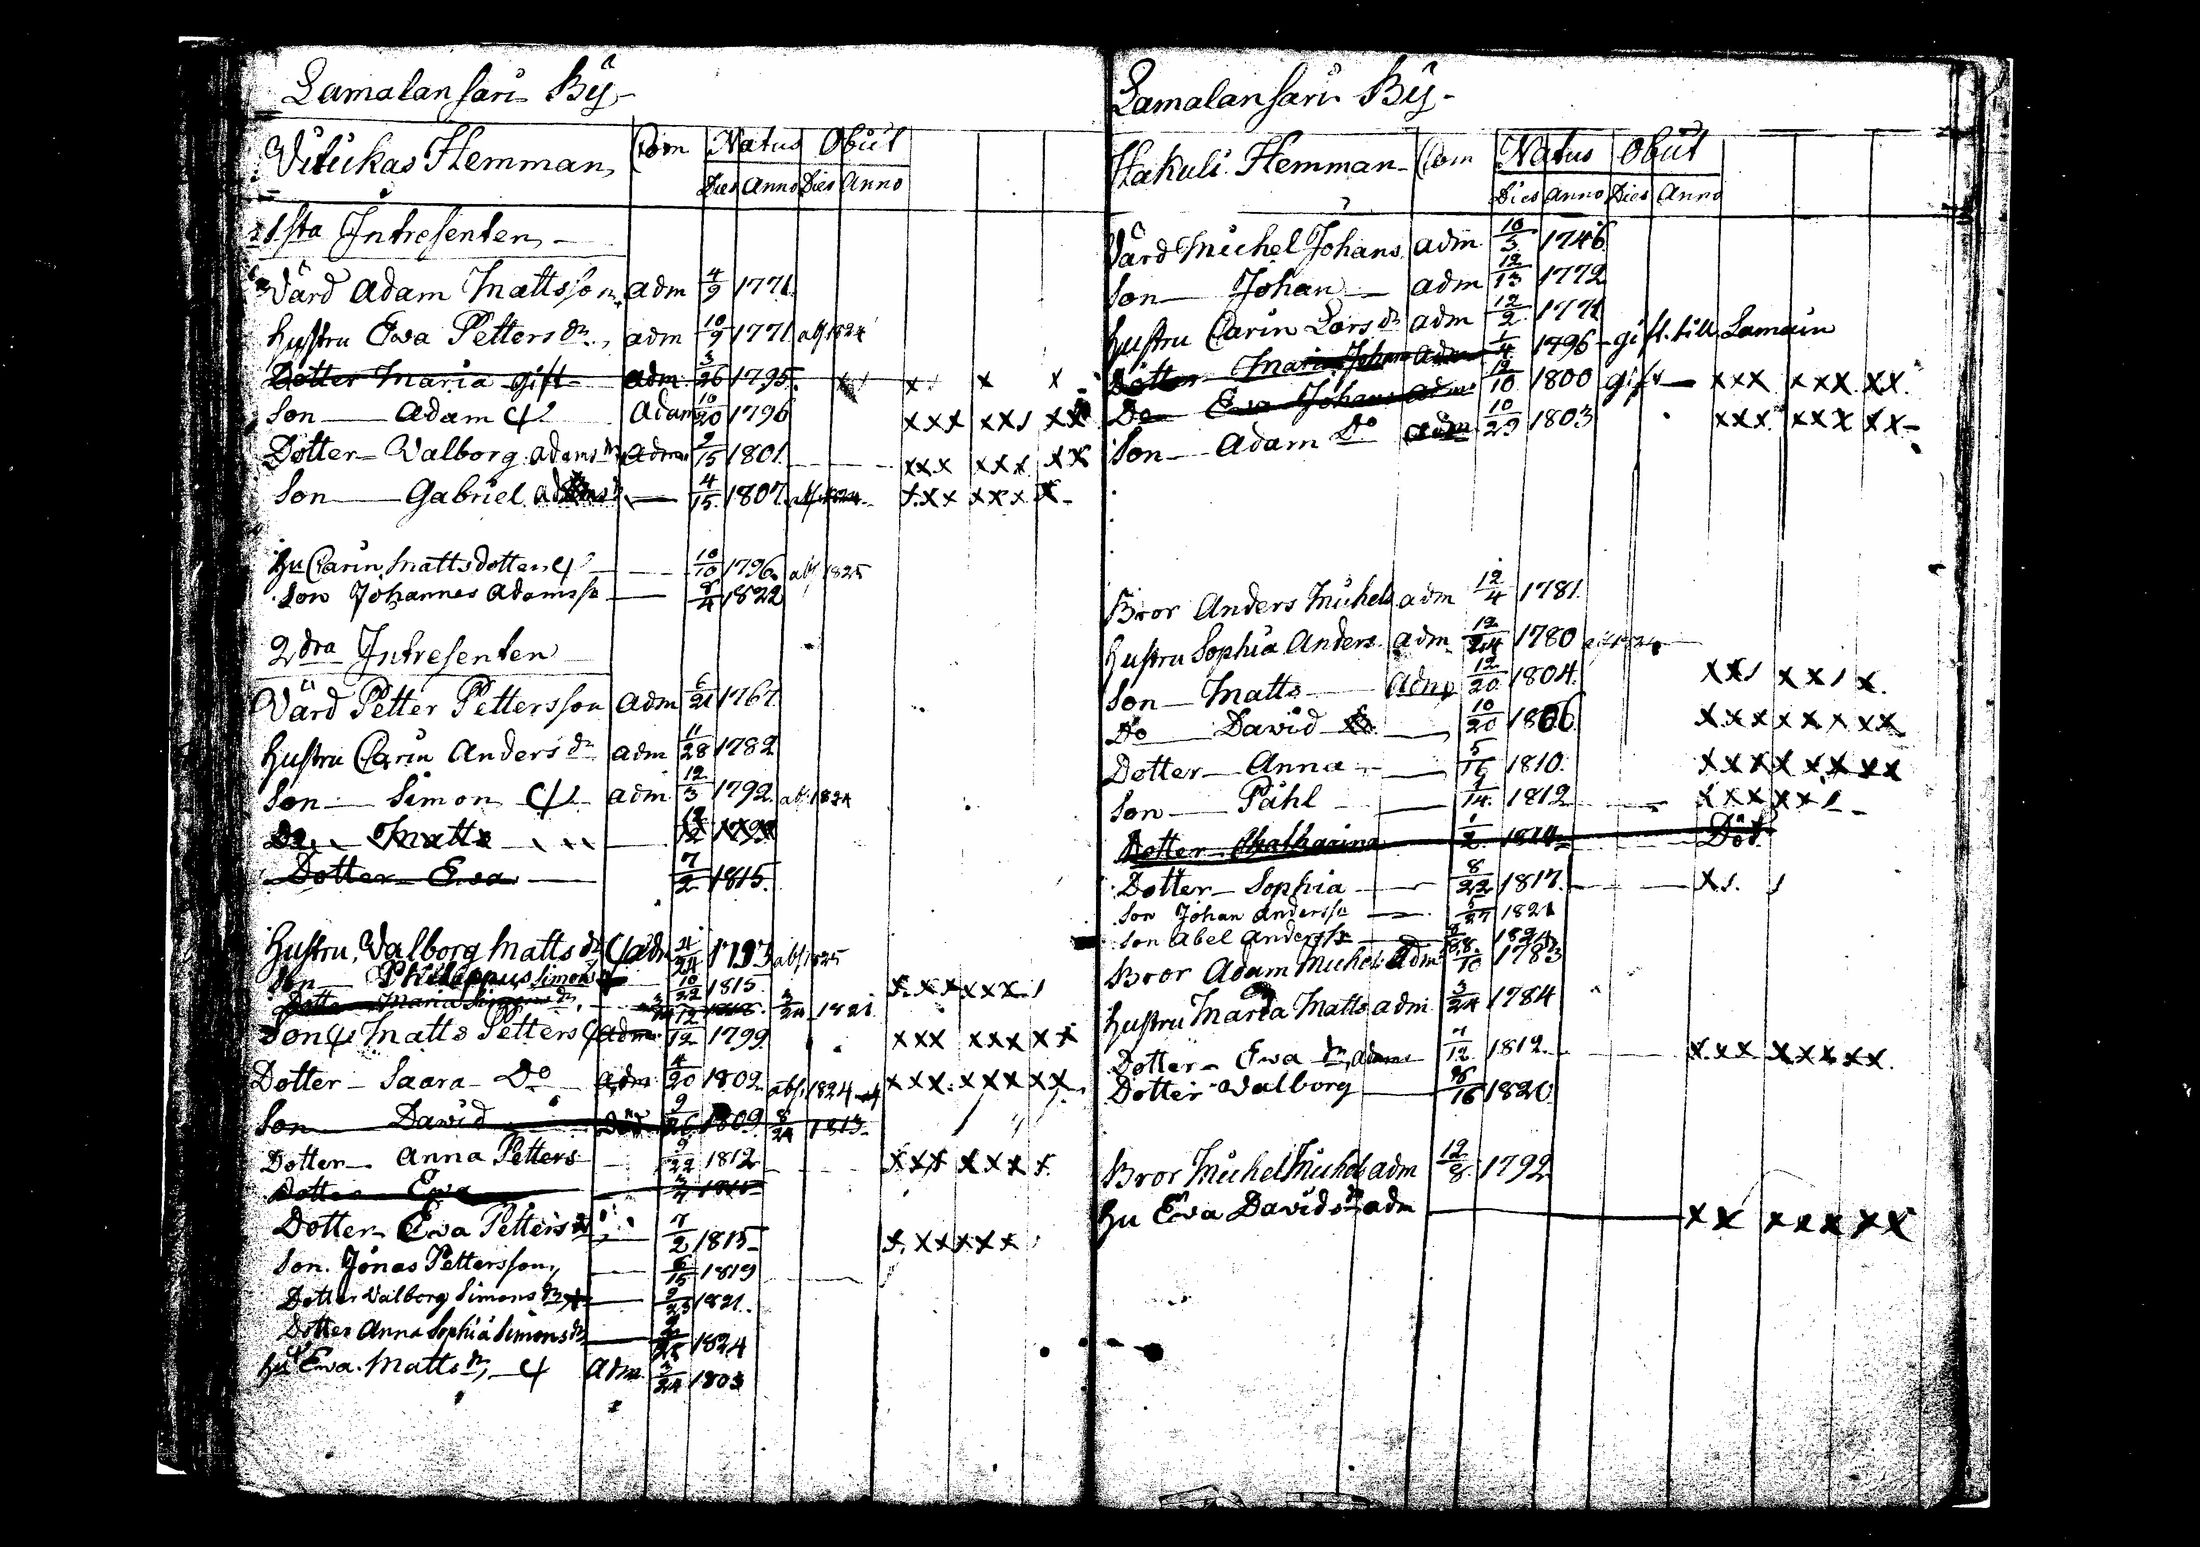 Lamalansari By
Witickas Hemman, Com Natus Obiit
Dies Anno Dies Anno
1sta Intresenten
Wärd Adam Mattsson adm 4/9 1771
Hustru Ewa Petters dr. adm 10/9 1771 abs. 1824
Dotter Maria gift adm 3/26 1795 x x x x
Son Adam Adam 10/20 1796 xxx xx1 xxx
Dotter Walborg Adams dr adm 9/15 1801 xxx xxx xx
Son Gabriel 4/15 1807 abs. 1824 xxx xxx x
Hu Carin Mattsdotter 10/10 1796 abs 1825
Son Johannes Adamsso 9/4 1822
2dra Intresenten
Wärd Petter Pettersson adm 6/21 1767
Hustru Carin Anders dr adm 11/28 1782
Son Simon adm 12/3 1792 abs. 1824
Do Matts
Dotter Ewa 7/2 1815
Hustru Walborg Matts dr adm 4/24 1793 abs. 1825
Son Philippus Simons 10/22 1815 xxx xxx 1
Dotter Maria Simons dr 3/24 1821
Son Matts Petters adm 12/12 1799 xxx xxx xx
Dotter Saara Do adm 4/20 1802 abs. 1824 xxx xxx xx
Son David Död 9/26 1809 8/24 1813
Dotter Anna Petters 9/22 1812 xxx xxx x
Dotter Ewa
Dotter Ewa Petters dr 7/2 1815 x xx xxx
Son Jonas Pettersson 6/15 1819
Dotter Walborg Simons dr 9/23 1821
Dotter Anna Sophia Simons dr 1824
Hu Ewa Matts dr adm 3/24 1803
Lamalansari By
Hakuli Hemman Com Natus Obiit
Dies Anno Dies Anno
Wärd Michel Johans adm 10/3 1746
Son Johan adm 12/13 1772
Hustru Carin Lars dr adm 12/2 1771
Dotter Maria Johans adm 1/4 1796 gift till Lamain
Do Ewa Johans adm 12/10 1800 gift xxx xxx xx
Son Adam Do adm 10/29 1803 xxx xxx xx
Bror Anders Michels adm 12/4 1781
Hustru Sophia Anders adm 12/24 1780
Son Matts adm 12/20 1804 xx1 xx1 x
Do David 10/20 1806 xxx xxx xx
Dotter Anna 5/16 1810 xxx xxx xx
Son Påhl 1/14 1812 xxx xx1
Dotter Chatharina 1/2 1814 Död
Dotter Sophia 8/22 1817 x1 1
Son Johan Andersso 5/27 1821
Son Abel Andersso 1824
Bror Adam Michels adm 8/10 1783
Hustru Maria Matts adm 3/24 1784
Dotter Ewa dr Adams 7/12 1812 xxx xxx xx
Dotter Walborg 1820
Bror Michel Michels adm 12/8 1792
Hu Ewa Davids dr adm xx xxx xx